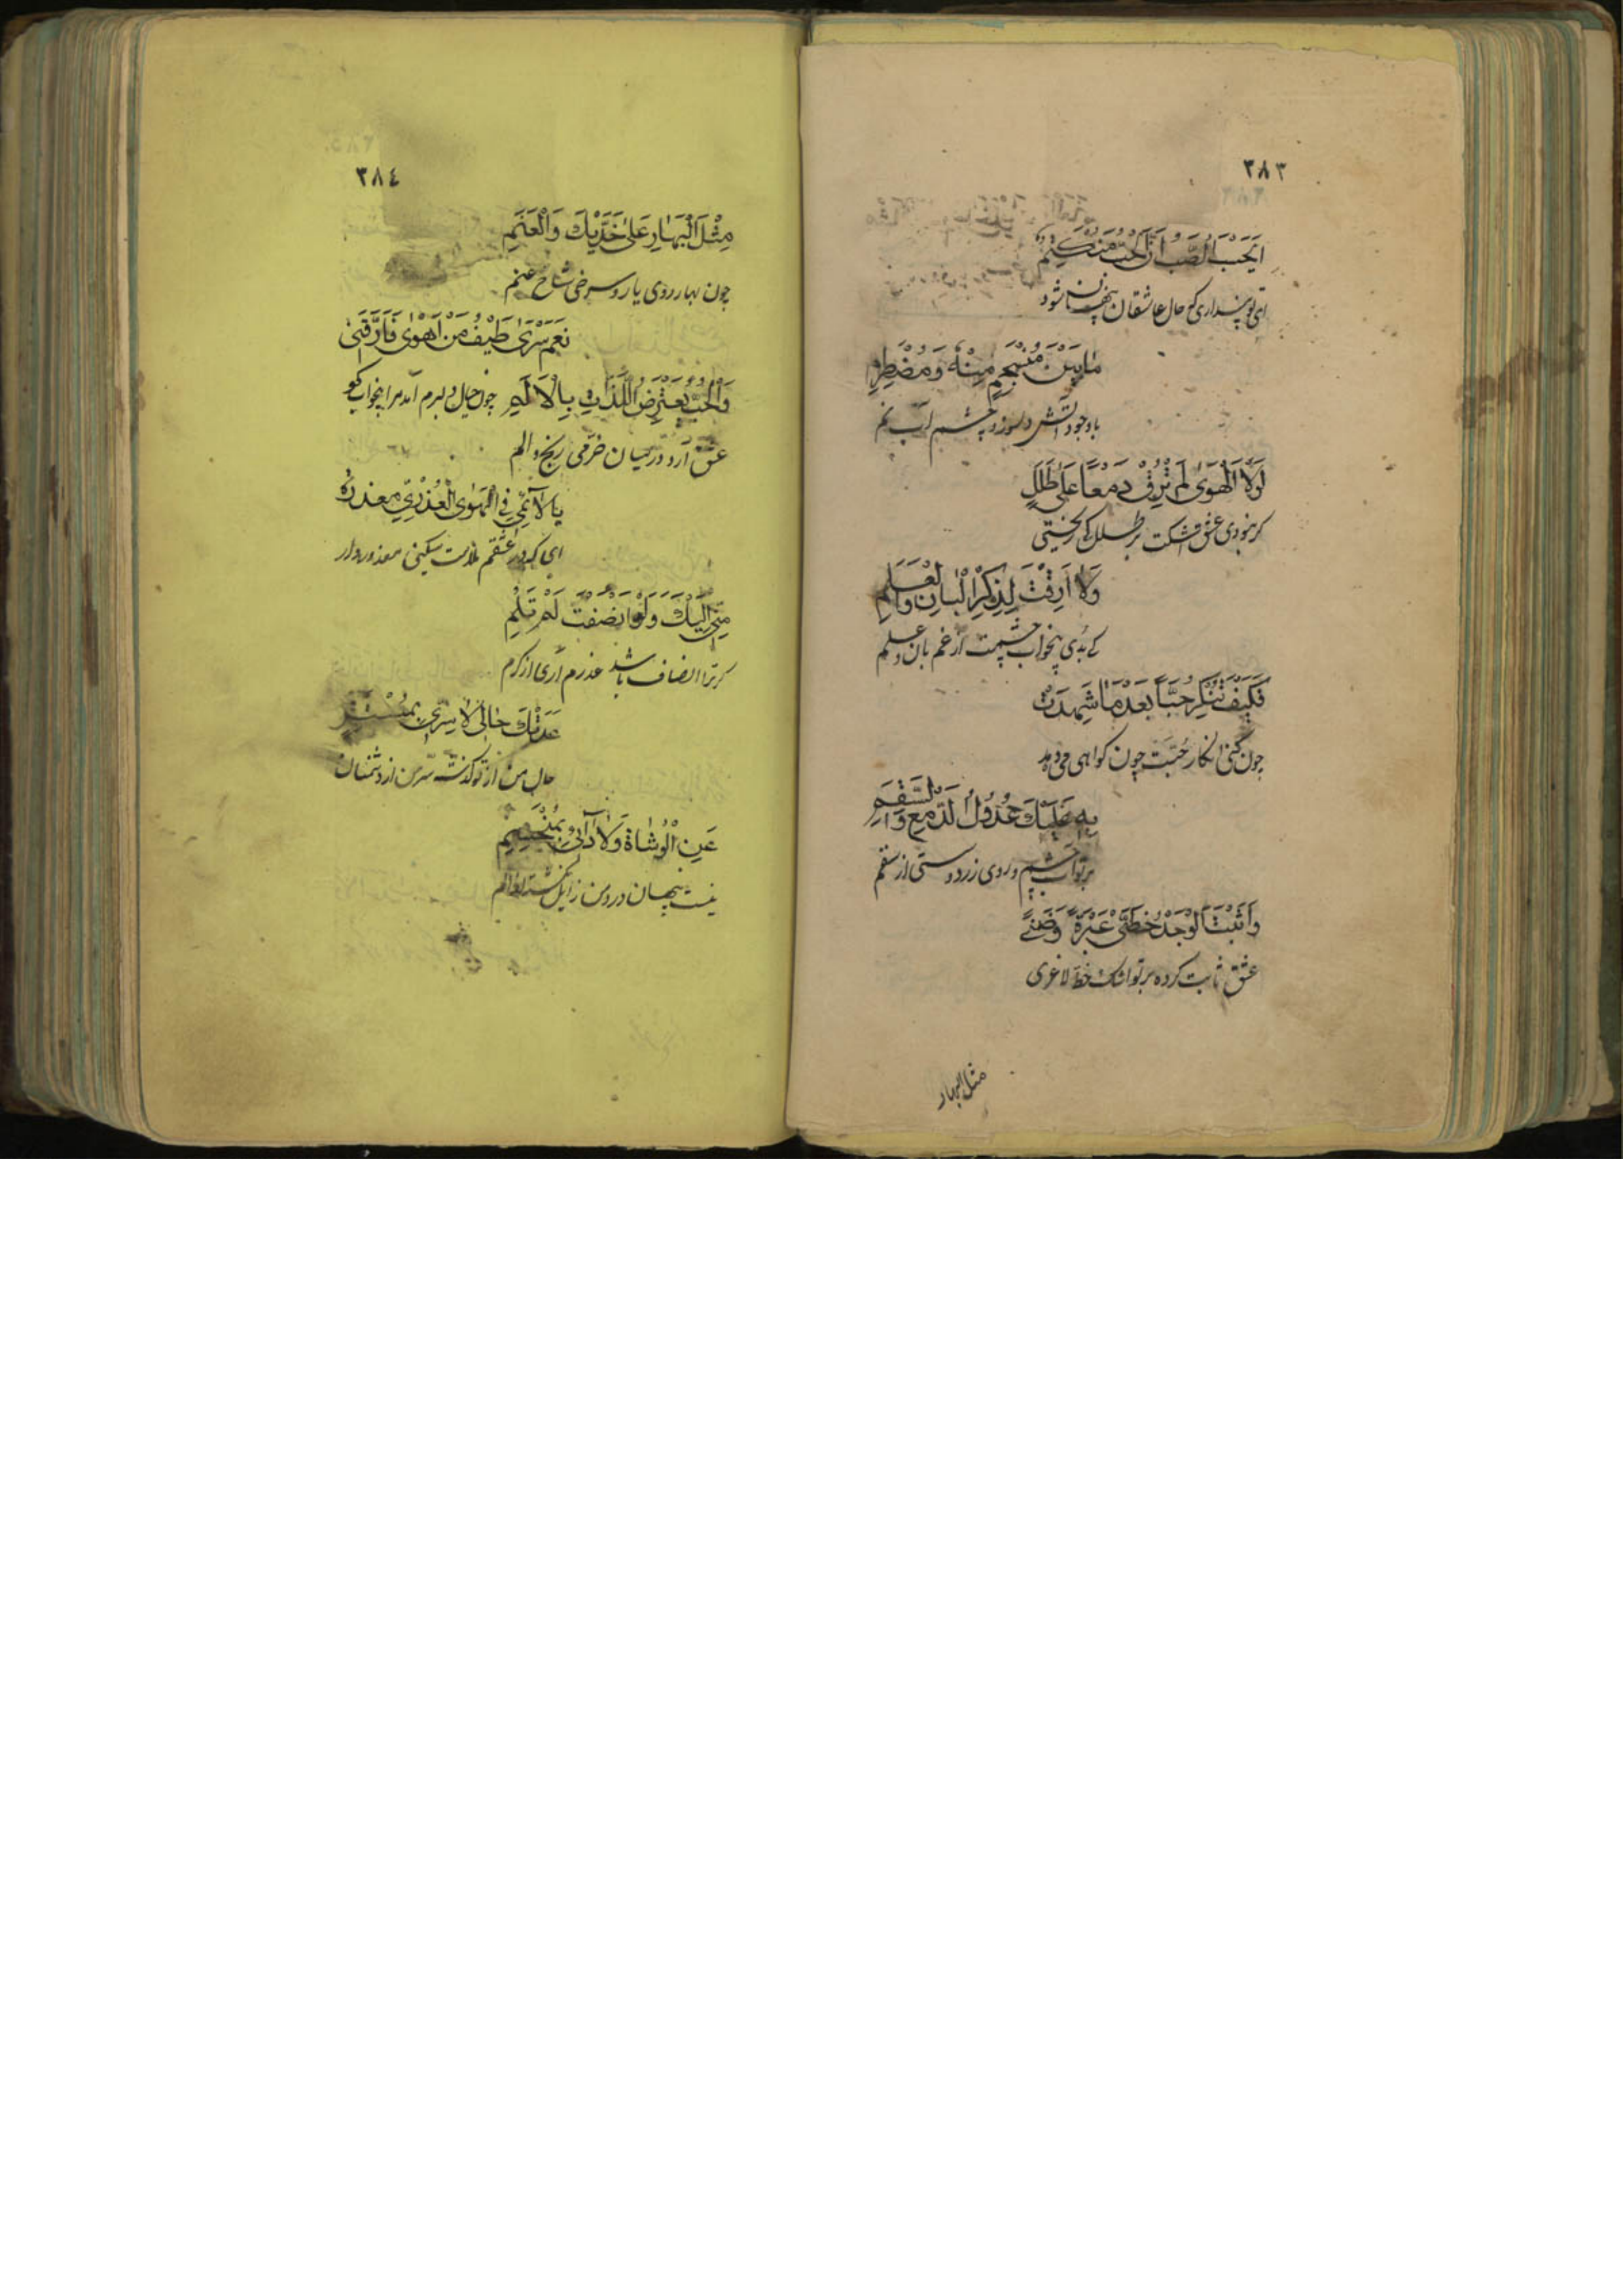 ٢٨٣
اَيَحْسَبُ الصَّبُّ اَنَّ الْحُبَّ مُنْكَتِمٌ
ای تو پنداری که حال عاشقان پنهان شود
مَا بَيْنَ مُنْسَجِمٍ مِنْهُ وَمُضْطَرِمِ
با وجود آتش دلسوز و چشم از آب نم
لَوْلَا الْهَوٰى لَمْ تُرِقْ دَمْعًا عَلٰى طَلَلٍ
کر نبودی عشق اشکت بر طلل کی ریختی
وَلَا اَرِقْتَ لِذِكْرِ الْبَانِ وَالْعَلَمِ
کی بدی بیخواب چشمت از غم بان و علم
فَكَيْفَ تُنْكِرُ حُبًّا بَعْدَ مَا شَهِدَتْ
چون کنی انکار حبت چون کواهی می دهد
بِهِ عَلَيْكَ عُدُوْلُ الدَّمْعِ وَالسَّقَمِ
بر تو آب چشم و روی زرد و سستی از سقم
وَاَثْبَتَ الْوَجْدُ خَطَّيْ عَبْرَةٍ وَضَنًى
عشق ثابت کرده بر تو اشک خط لاغری
مثل البهار
٢٨٤
مِثْلَ الْبَهَارِ عَلٰى خَدَّيْكَ وَالْعَنَمِ
چون بهار روی یار و سرخی شاخ عنم
نَعَمْ سَرٰى طَيْفُ مَنْ اَهْوٰى فَاَرَّقَنِىْ
وَالْحُبُّ يَعْتَرِضُ اللَّذَّاتِ بِالْاَلَمِ چون خیال دلبرم آمد مرا بیخواب کرد
عشق آرد در میان خرمی رنج و الم
يَا لَائِمِيْ فِي الْهَوٰى الْعُذْرِيِّ مَعْذِرَةً
ای که در عشقم ملامت میکنی معذور دار
مِنِّىْ اِلَيْكَ وَلَوْ اَنْصَفْتَ لَمْ تَلُمِ
کر ترا انصاف باشد عذرم آری از کرم
عَدَتْكَ حَالِىَ لَا سِرِّىْ بِمُسْتَتِرٍ
حال من از تو کذشت سر من از دشمنان
عَنِ الْوُشَاةِ وَلَا دَآئِىْ بِمُنْحَسِمِ
نیست پنهان درد من زایل نکشته از الم